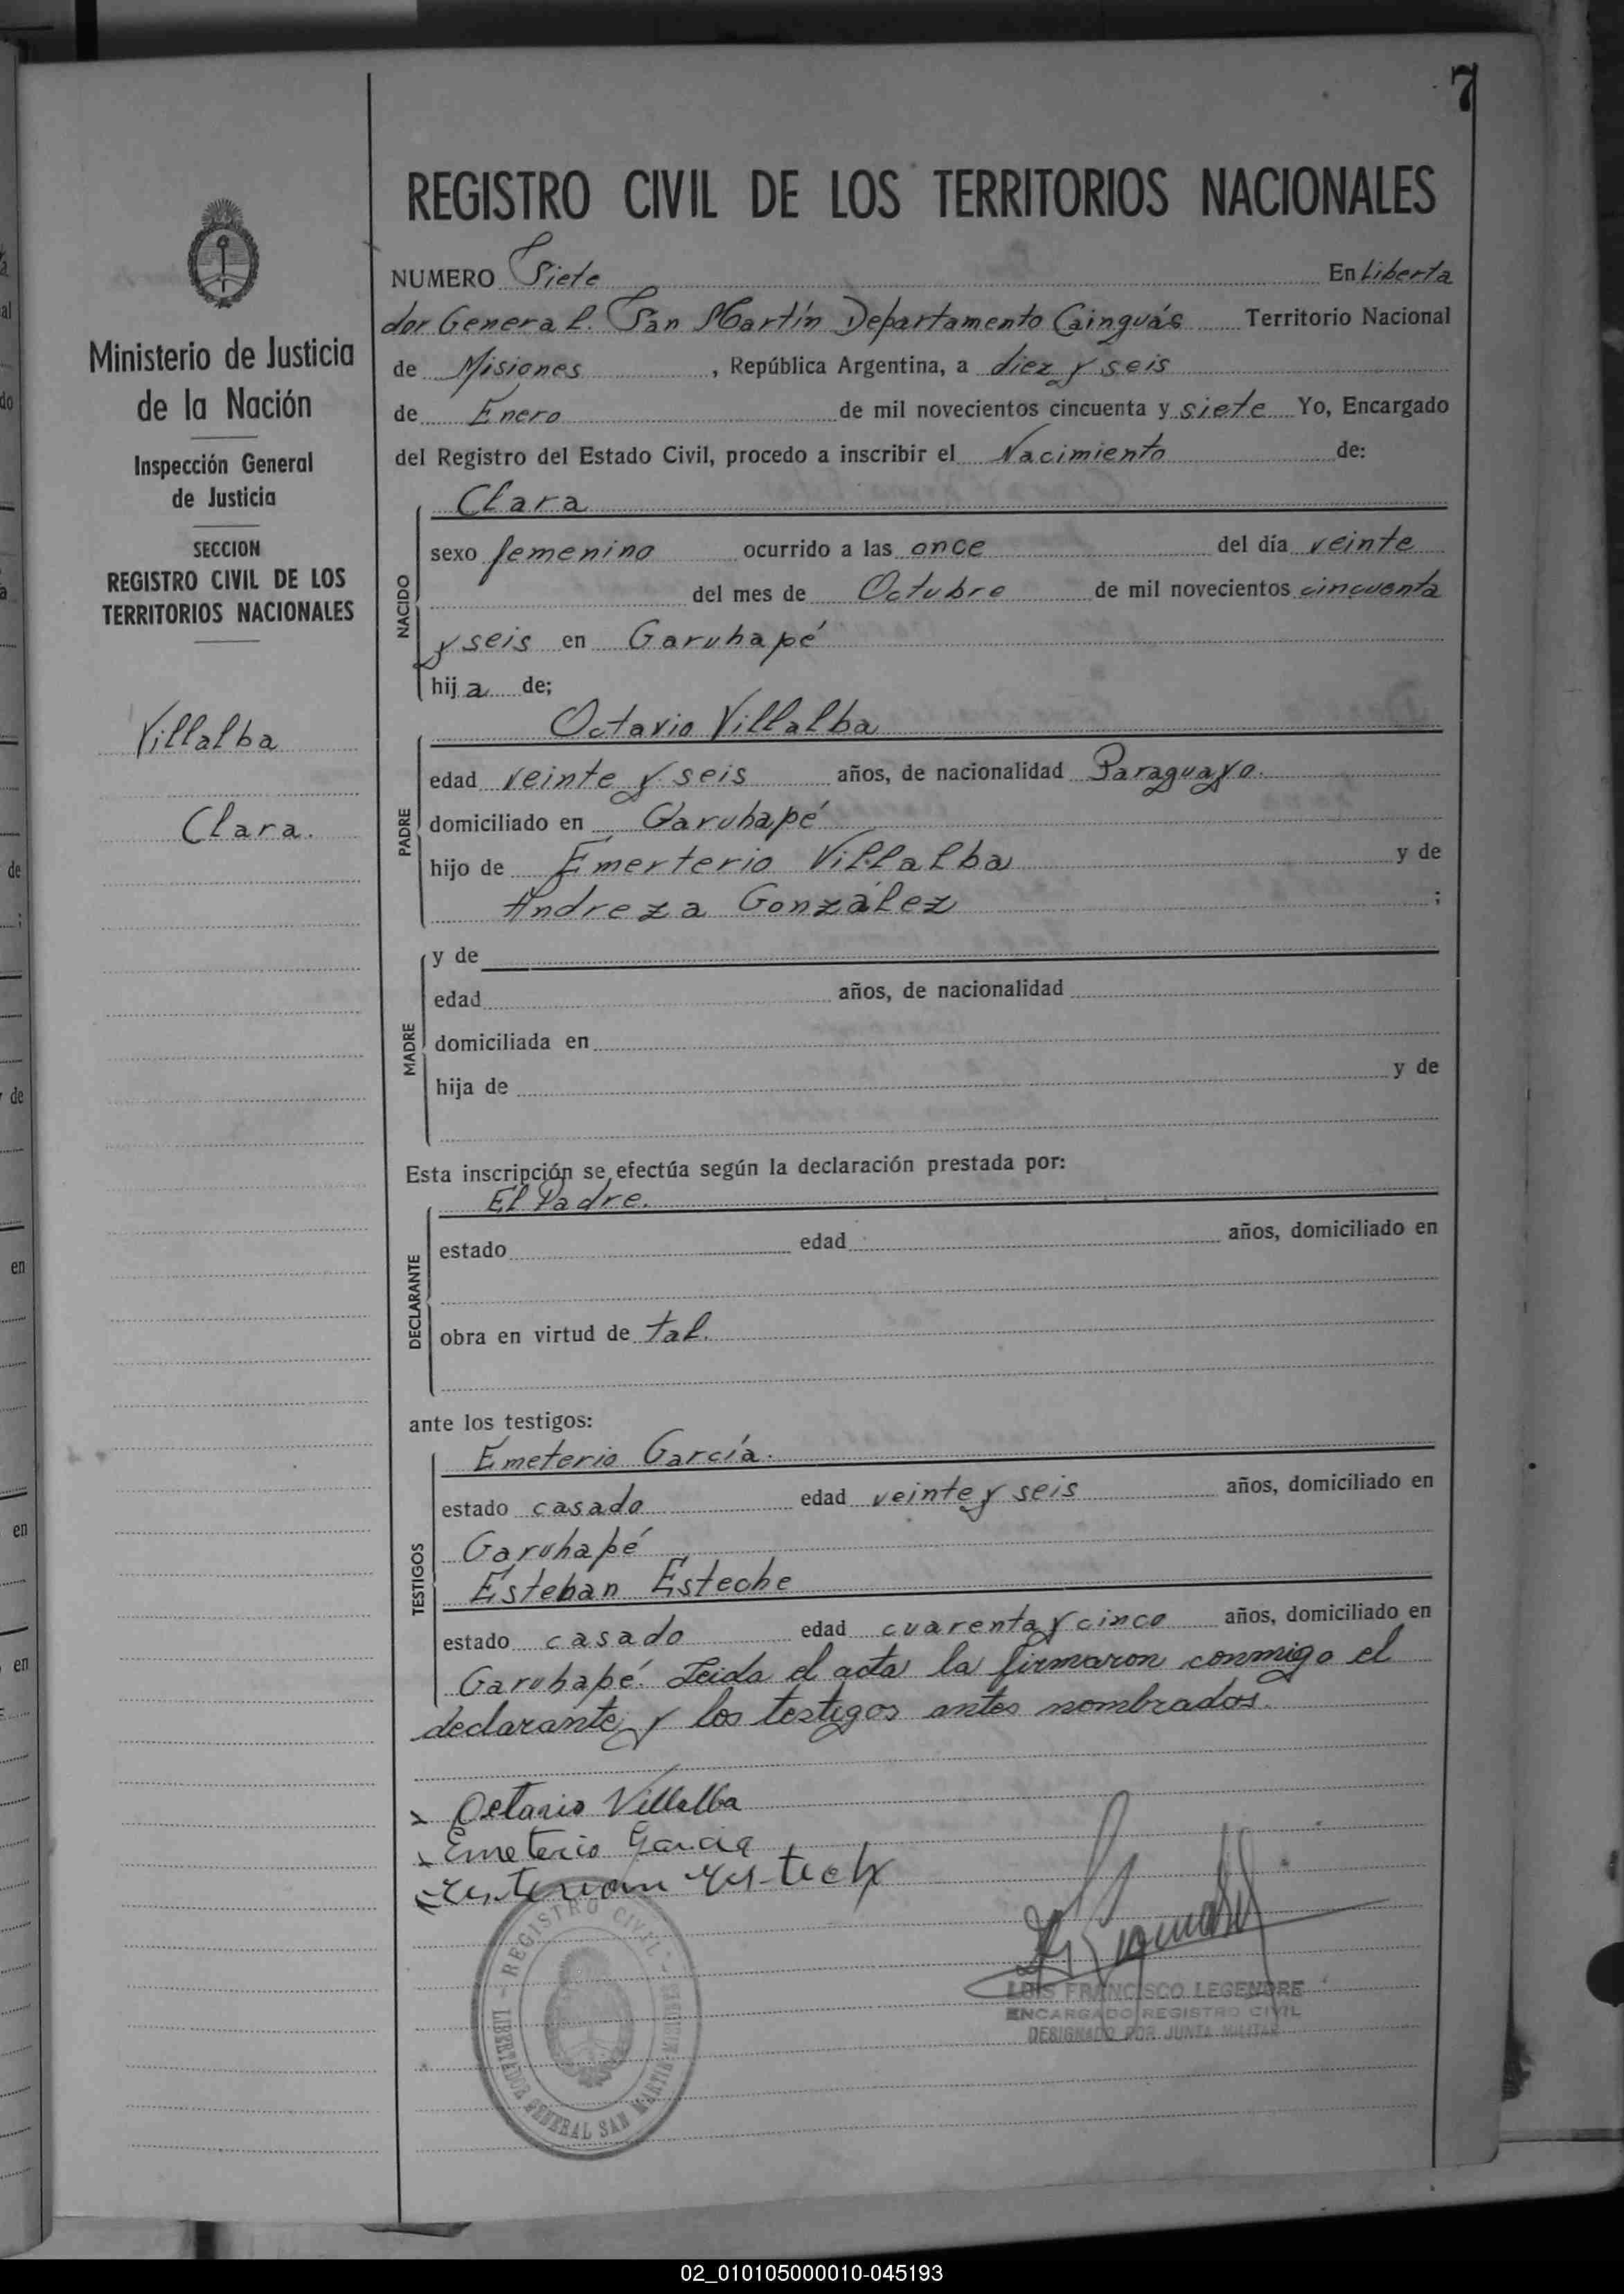 7
REGISTRO CIVIL DE LOS TERRITORIOS NACIONALES
Ministerio de Justicia
de la Nación
Inspección General
de Justicia
SECCION
REGISTRO CIVIL DE LOS
TERRITORIOS NACIONALES
Villalba
Clara.
NUMERO Siete En Liberta
dor General. San Martín Departamento Cainguás Territorio Nacional
de Misiones, República Argentina, a diez y seis
de Enero de mil novecientos cincuenta y siete Yo, Encargado
del Registro del Estado Civil, procedo a inscribir el Nacimiento de:
NACIDO
Clara
sexo femenino ocurrido a las once del día veinte
del mes de Octubre de mil novecientos cincuenta
y seis en Garuhapé
hija de;
Octavio Villalba
PADRE
edad veinte y seis años, de nacionalidad Paraguayo.
domiciliado en Garuhapé
hijo de Emerterio Villalba y de
Andreza González ;
MADRE
y de
edad años, de nacionalidad
domiciliada en
hija de y de
Esta inscripción se efectúa según la declaración prestada por:
El Padre.
DECLARANTE
estado edad años, domiciliado en
obra en virtud de tal.
ante los testigos:
TESTIGOS
Emeterio García.
estado casado edad veinte y seis años, domiciliado en
Garuhapé
Esteban Esteche
estado casado edad cuarenta y cinco años, domiciliado en
Garuhapé. Leida el acta la firmaron conmigo el
declarante y los testigos antes nombrados.
Octavio Villalba
Emeterio Garcia
REGISTRO CIVIL
LIBERTADOR GENERAL SAN MARTIN - MISIONES
LUIS FRANCISCO LEGENDRE
ENCARGADO REGISTRO CIVIL
DESIGNADO POR JUNTA MILITAR
02_010105000010-045193